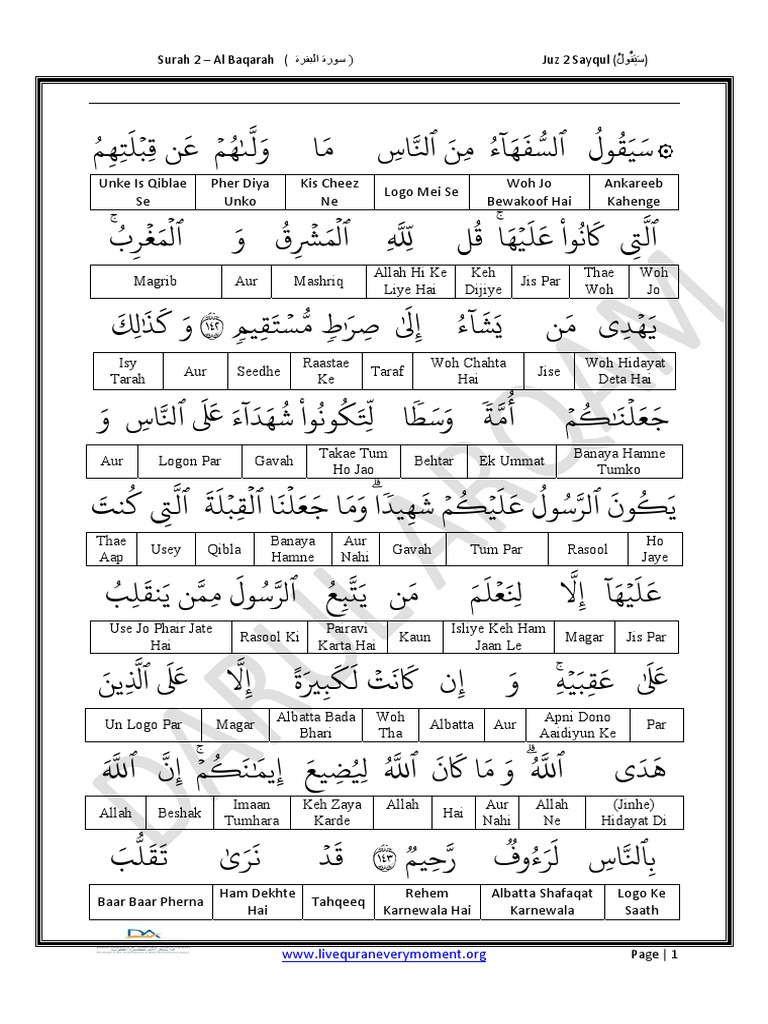 Surah 2 – Al Baqarah ( سورة البقرة ) Juz 2 Sayqul (سَيَقُولُ)
۞ سَيَقُولُ ٱلسُّفَهَآءُ مِنَ ٱلنَّاسِ مَا وَلَّىٰهُمۡ عَن قِبۡلَتِهِمُ
Unke Is Qiblae Se | Pher Diya Unko | Kis Cheez Ne | Logo Mei Se | Woh Jo Bewakoof Hai | Ankareeb Kahenge
ٱلَّتِي كَانُواْ عَلَيۡهَاۚ قُل لِّلَّهِ ٱلۡمَشۡرِقُ وَ ٱلۡمَغۡرِبُۚ
Magrib | Aur | Mashriq | Allah Hi Ke Liye Hai | Keh Dijiye | Jis Par | Thae Woh | Woh Jo
يَهۡدِي مَن يَشَآءُ إِلَىٰ صِرَٰطٖ مُّسۡتَقِيمٖ ١٤٢ وَ كَذَٰلِكَ
Isy Tarah | Aur | Seedhe | Raastae Ke | Taraf | Woh Chahta Hai | Jise | Woh Hidayat Deta Hai
جَعَلۡنَٰكُمۡ أُمَّةٗ وَسَطٗا لِّتَكُونُواْ شُهَدَآءَ عَلَى ٱلنَّاسِ وَ
Aur | Logon Par | Gavah | Takae Tum Ho Jao | Behtar | Ek Ummat | Banaya Hamne Tumko
يَكُونَ ٱلرَّسُولُ عَلَيۡكُمۡ شَهِيدٗاۗ وَمَا جَعَلۡنَا ٱلۡقِبۡلَةَ ٱلَّتِي كُنتَ
Thae Aap | Usey | Qibla | Banaya Hamne | Aur Nahi | Gavah | Tum Par | Rasool | Ho Jaye
عَلَيۡهَآ إِلَّا لِنَعۡلَمَ مَن يَتَّبِعُ ٱلرَّسُولَ مِمَّن يَنقَلِبُ
Use Jo Phair Jate Hai | Rasool Ki | Pairavi Karta Hai | Kaun | Isliye Keh Ham Jaan Le | Magar | Jis Par
عَلَىٰ عَقِبَيۡهِۚ وَ إِن كَانَتۡ لَكَبِيرَةً إِلَّا عَلَى ٱلَّذِينَ
Un Logo Par | Magar | Albatta Bada Bhari | Woh Tha | Albatta | Aur | Apni Dono Aaidiyun Ke | Par
هَدَى ٱللَّهُۗ وَ مَا كَانَ ٱللَّهُ لِيُضِيعَ إِيمَٰنَكُمۡۚ إِنَّ ٱللَّهَ
Allah | Beshak | Imaan Tumhara | Keh Zaya Karde | Allah | Hai | Aur Nahi | Allah Ne | (Jinhe) Hidayat Di
بِٱلنَّاسِ لَرَءُوفٞ رَّحِيمٞ ١٤٣ قَدۡ نَرَىٰ تَقَلُّبَ
Baar Baar Pherna | Ham Dekhte Hai | Tahqeeq | Rehem Karnewala Hai | Albatta Shafaqat Karnewala | Logo Ke Saath
DARUL ARQAM
DA
www.livequraneverymoment.org Page | 1